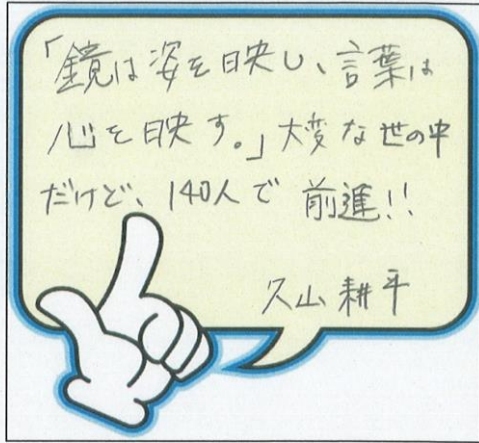 「鏡は姿を映し、言葉は
心を映す。」大変な世の中
だけど、140人で 前進!!
久山 耕平